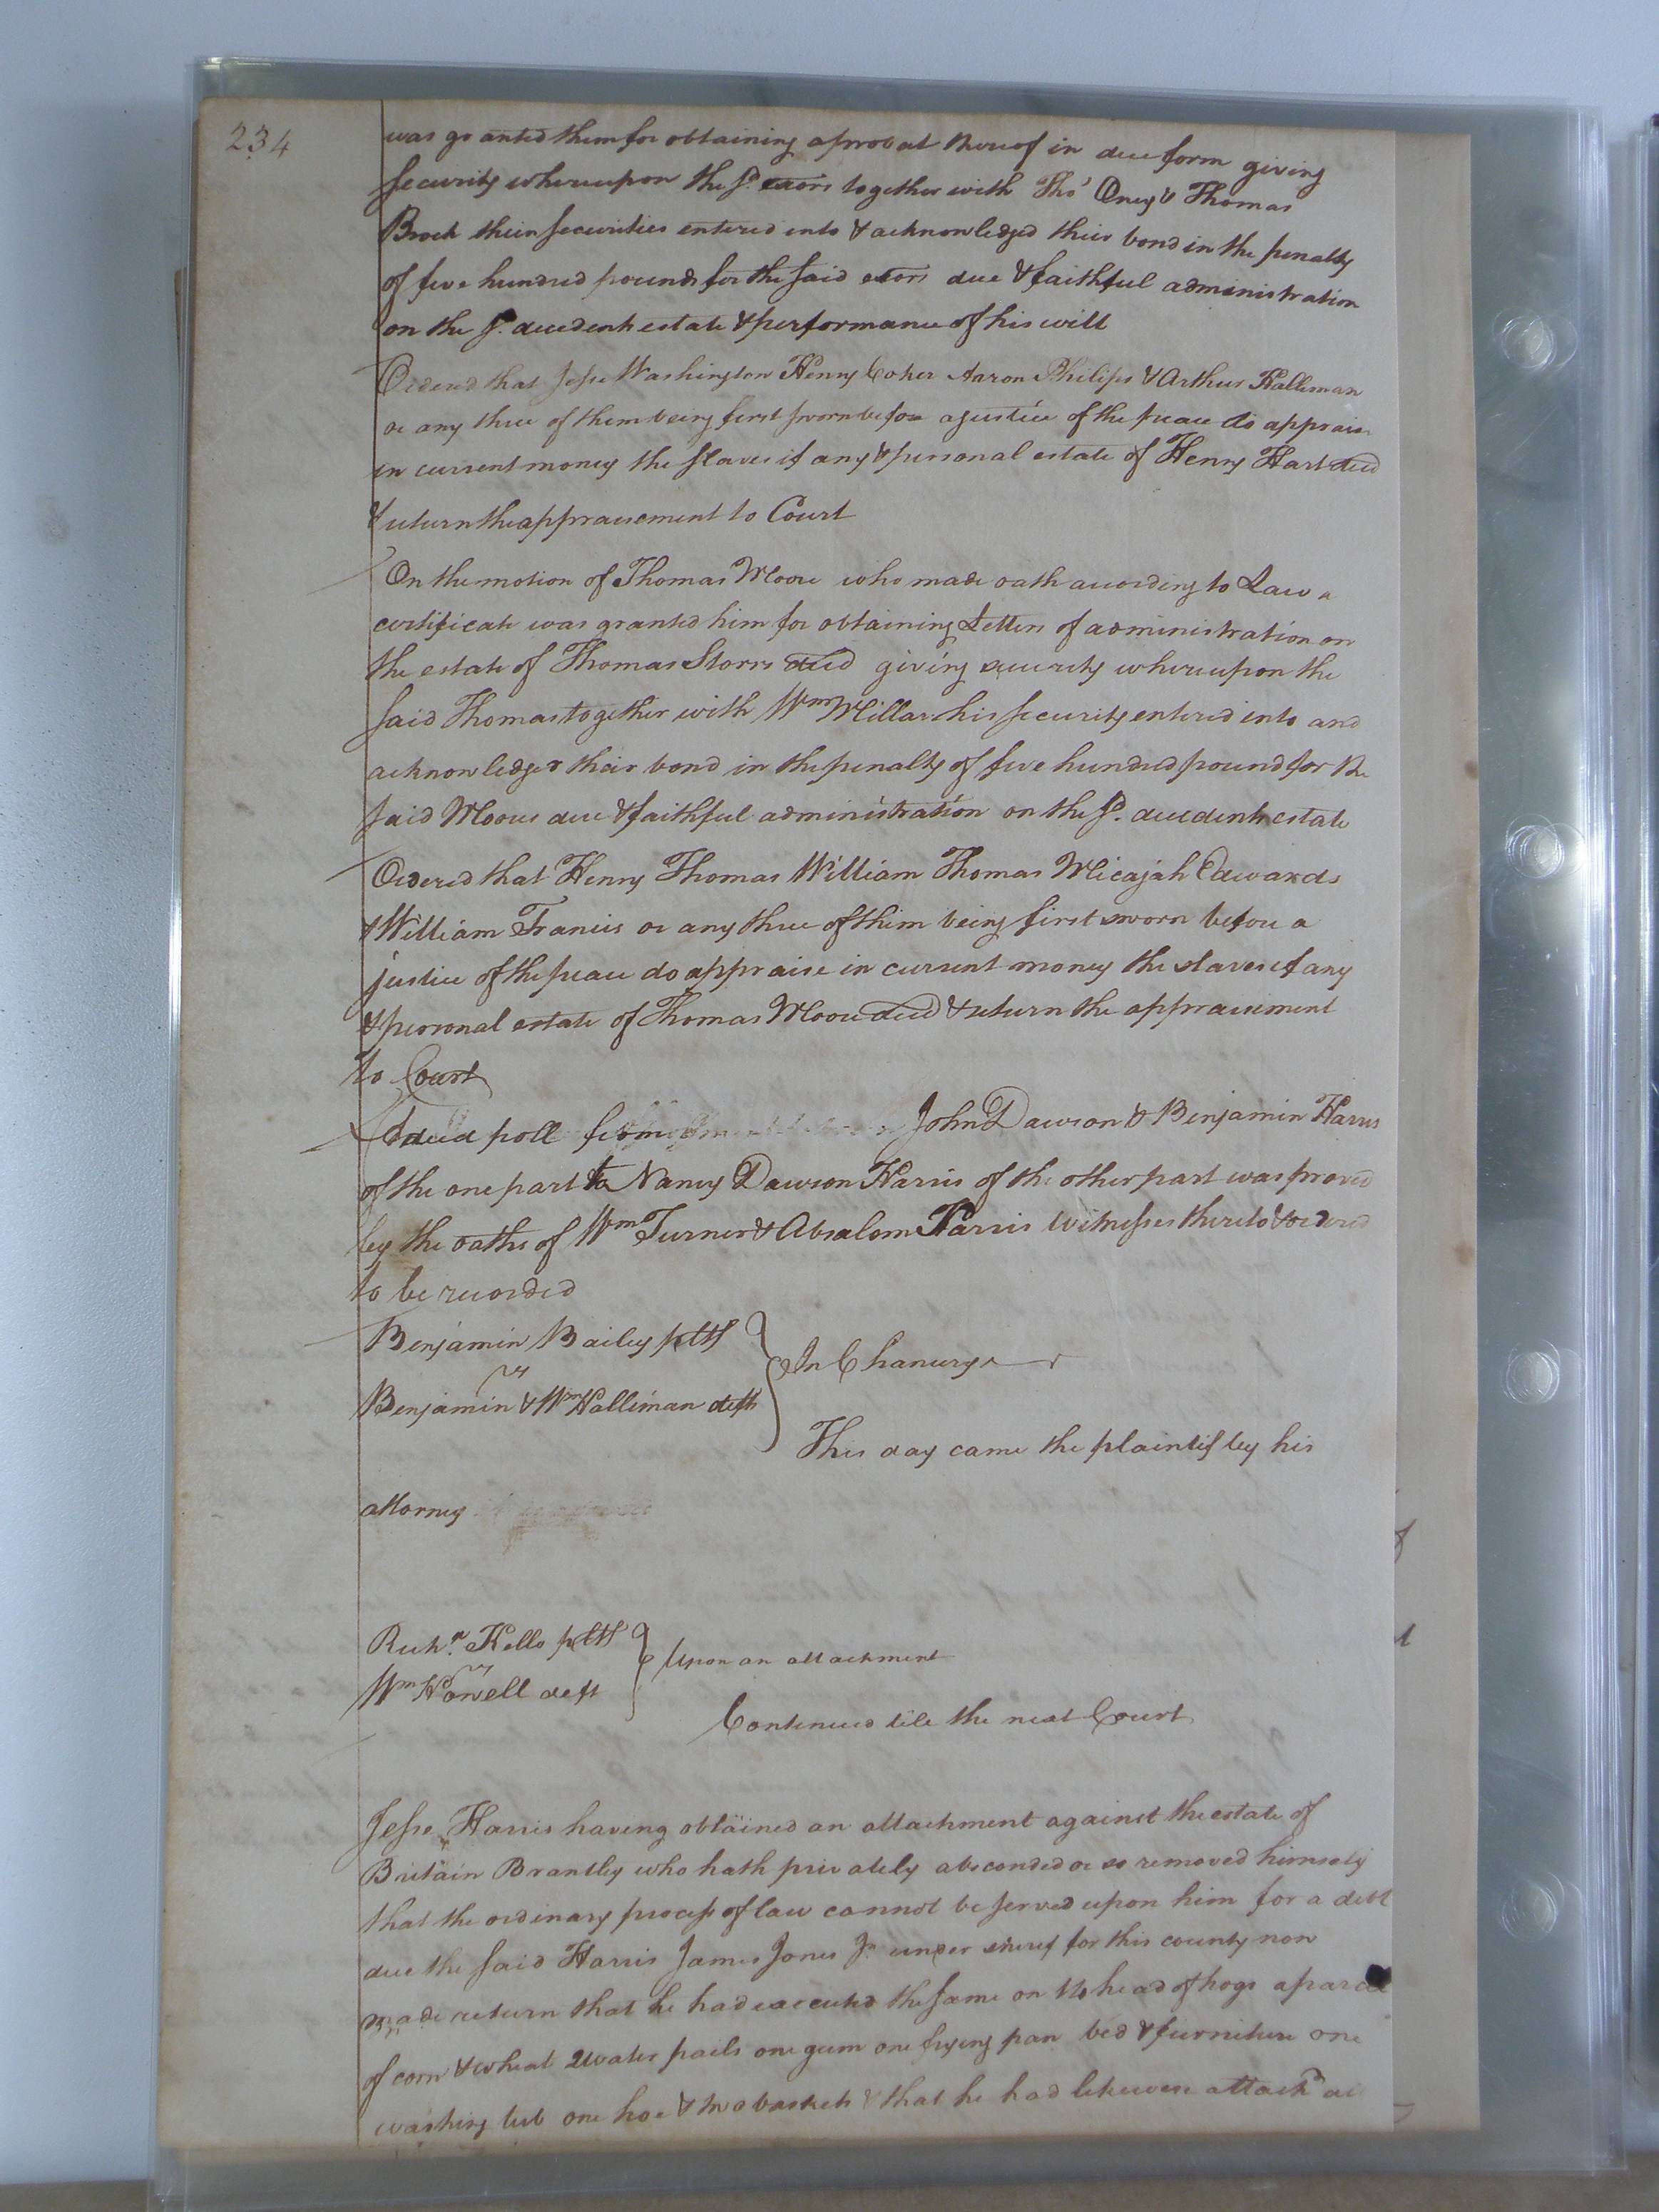 234
was granted them for obtaining a probat thereof in due form giving
security whereupon the sd. exors together with Thos Oney & Thomas
Brock their securities entered into & acknowledged their bond in the penalty
of five hundred pounds for the said exors due & faithful administration
on the sd. decedents estate & performance of his will
Ordered that Jesse Washington Henry Coker Aaron Philips & Arthur Halliman
or any three of them being first sworn before a justice of the peace do appraise
in current money the slaves if any & personal estate of Henry Hart decd
& return the appraisement to Court
On the motion of Thomas Moore who made oath according to Law a
certificate was granted him for obtaining Letters of administration on
the estate of Thomas Storrs decd giving security whereupon the
said Thomas together with Wm Millar his security entered into and
acknowledged their bond in the penalty of five hundred pound for the
said Moores due & faithful administration on the sd. decedents estate
Ordered that Henry Thomas William Thomas Micajah Edwards
& William Francis or any three of them being first sworn before a
justice of the peace do appraise in current money the slaves if any
& personal estate of Thomas Moore decd & return the appraisement
to Court
A deed poll from John Dawson & Benjamin Harris
of the one part to Nancy Dawson Harris of the other part was proved
by the oaths of Wm Turner & Absalom Harris witnesses thereto & ordered
to be recorded
Benjamin Bailey pltf
vs
In Chancery
Benjamin & Wm Halliman defts
This day came the plaintif by his
attorney
Richd. Kello pltf
vs
Upon an attachment
Wm Howell deft
Continued till the next Court
Jesse Harris having obtained an attachment against the estate of
Britain Brantley who hath privately absconded or so removed himself
that the ordinary process of law cannot be served upon him for a debt
due the said Harris James Jones Jr under sherif for this county now
made return that he had executed the same on 16 head of hogs a parcel
of corn & wheat 2 water pails one gum one frying pan bed & furniture one
washing tub one hoe & two baskets & that he had likewise attachd